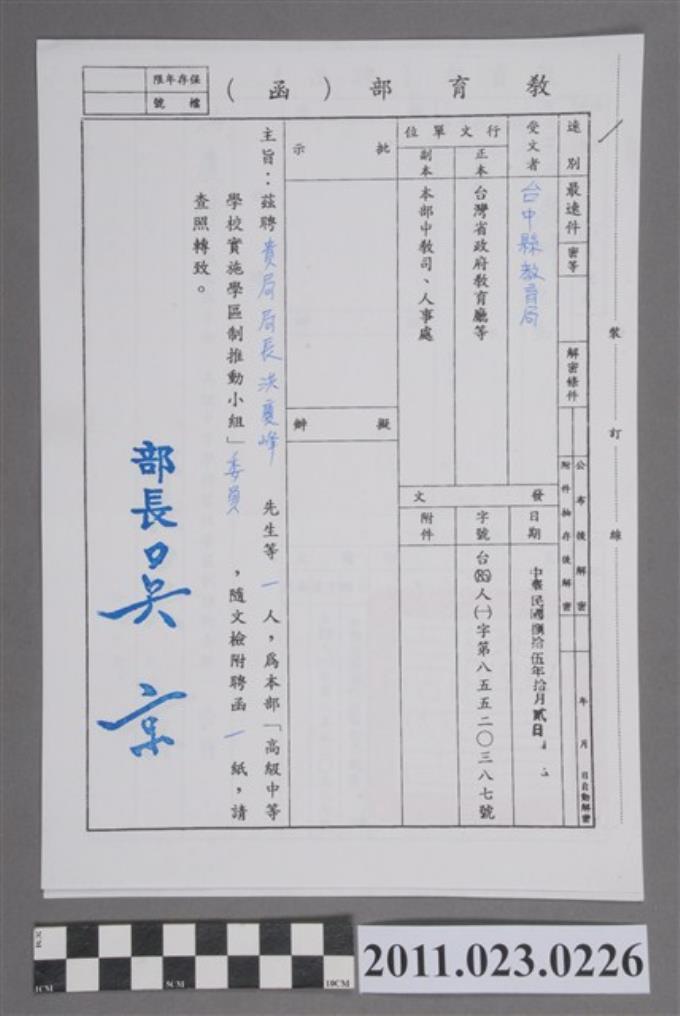 教育部（函）
保存年限
檔號
速別
最速件
密等
解密條件
公布後解密
附件抽存後解密
年 月 日自動解密
受文者
台中縣教育局
行文單位
正本
台灣省政府教育廳等
副本
本部中教司、人事處
發文
日期
中華民國捌拾伍年拾月貳日
字號
台(85)人(一)字第八五五二〇三八七號
附件
批示
擬辦
主旨：茲聘貴局局長洪慶峰 先生等一人，為本部「高級中等
學校實施學區制推動小組」委員，隨文檢附聘函一紙，請
查照轉致。
部長吳京
裝
訂
線
1CM
5CM
10CM
2011.023.0226